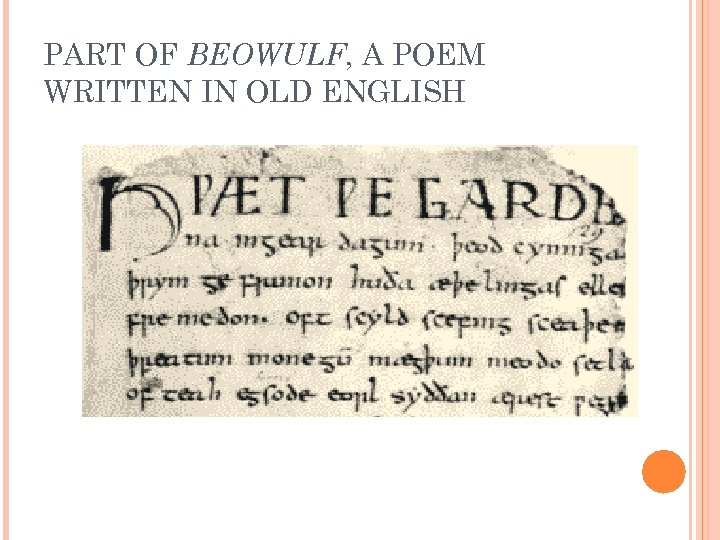 PART OF BEOWULF, A POEM
WRITTEN IN OLD ENGLISH
HǷÆT ǷE GARDE
na ingear dagum. þeod cyninga
þrym ge frunon huða æþelingas elle
fre medon. oft scyld scefing sceaþe
þreatum monegū mægþum meodo setla
of teah egsode eorl syððan ærest ƿear